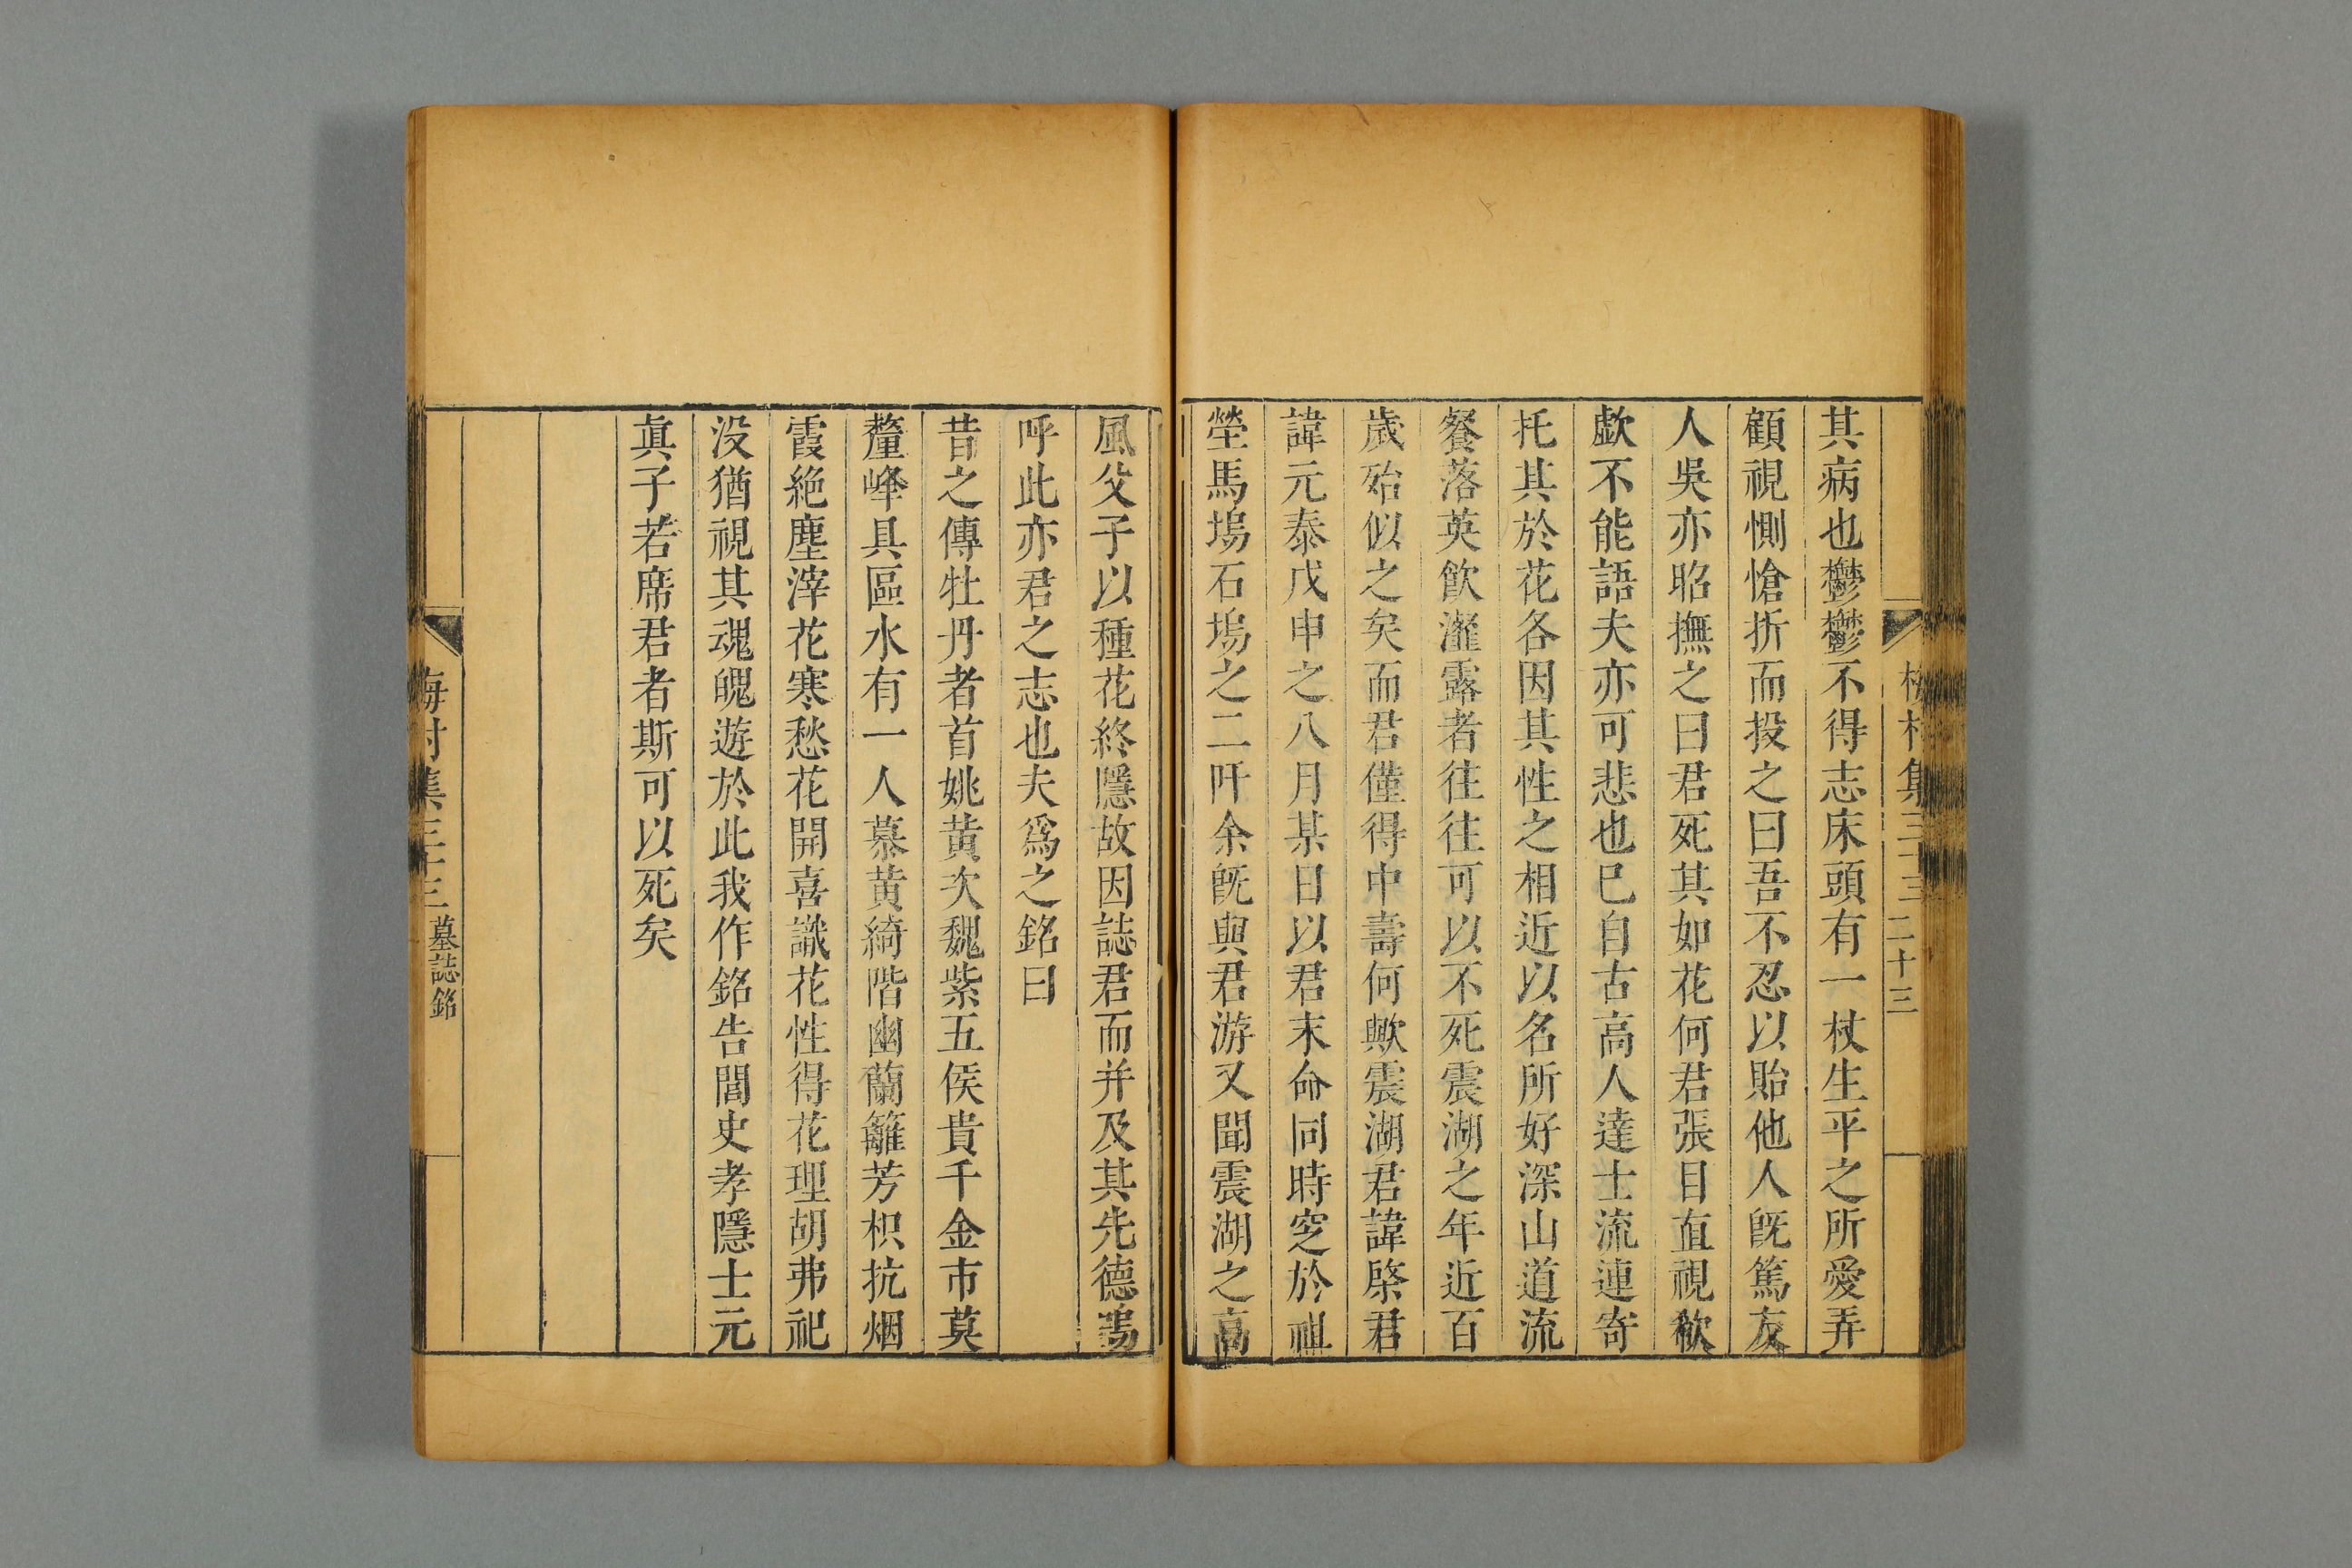 村集三十三 二十三
其病也鬱鬱不得志床頭有一杖生平之所愛弄
顧視惻愴折而投之曰吾不忍以貽他人旣篤友
人吳亦昭撫之曰君死其如花何君張目直視欷
歔不能語夫亦可悲也已自古高人達士流連寄
托其於花各因其性之相近以名所好深山道流
餐落英飲瀣露者往往可以不死震湖之年近百
歲殆似之矣而君僅得中壽何歟震湖君諱棨君
諱元泰戊申之八月某日以君末命同時窆於祖
塋馬塢石塢之二阡余旣與君游又聞震湖之高
風父子以種花終隱故因誌君而并及其先德嗚
呼此亦君之志也夫爲之銘曰
昔之傳牡丹者首姚黃次魏紫五侯貴千金市莫
釐峰具區水有一人慕黃綺階幽蘭籬芳枳抗烟
霞絶塵滓花寒愁花開喜識花性得花理胡弗祀
没猶視其魂魄遊於此我作銘告閭史孝隱士元
眞子若席君者斯可以死矣
梅村集三十三 墓誌銘